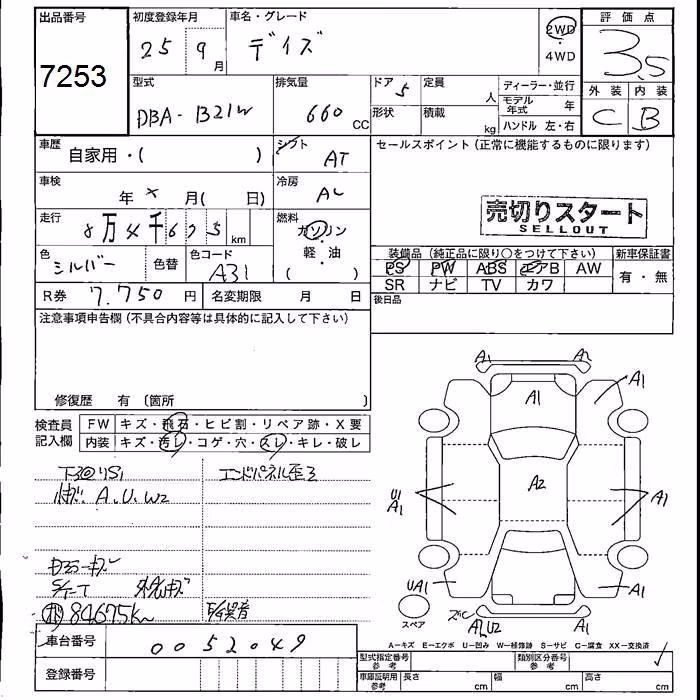 出品番号 初度登録年月 車名・グレード 評価点
7253 25 9月 デイズ 2WD・4WD 3.5
型式 排気量 ドア 5 定員 人 ディーラー・並行 外装 内装
DBA-B21W 660 CC 形状 積載 kg モデル年式 年 C B
ハンドル 左・右
車歴 自家用・( ) シフト AT セールスポイント (正常に機能するものに限ります)
車検 年 × 月( 日) 冷房 AC
売切りスタート
SELLOUT
走行 8万4千675 km 燃料 ガソリン・軽・油 ( )
色 シルバー 色替 色コード A31
装備品 (純正品に限り○をつけて下さい) 新車保証書
PS PW ABS エアB AW 有・無
SR ナビ TV カワ
R券 7,750 円 名変期限 月 日 後日品
注意事項申告欄 (不具合内容等は具体的に記入して下さい)
修復歴 有 〔箇所 〕
検査員記入欄 FW キズ・飛石・ヒビ割・リペア跡・X要
内装 キズ・汚レ・コゲ・穴・スレ・キレ・破レ
A.U.W2
エンドパネル歪ミ
84675km
A1 A2
A1 A1
A2
U1 A1 A1
UA1 A1
スペア
A1U2 A1
A-キズ E-エクボ U-凹み W-補修跡 S-サビ C-腐食 XX-交換済
車台番号 0052049
登録番号
型式指定番号 参考 類別区分番号 参考
車庫証明用 参考 長さ cm 幅 cm 高さ cm